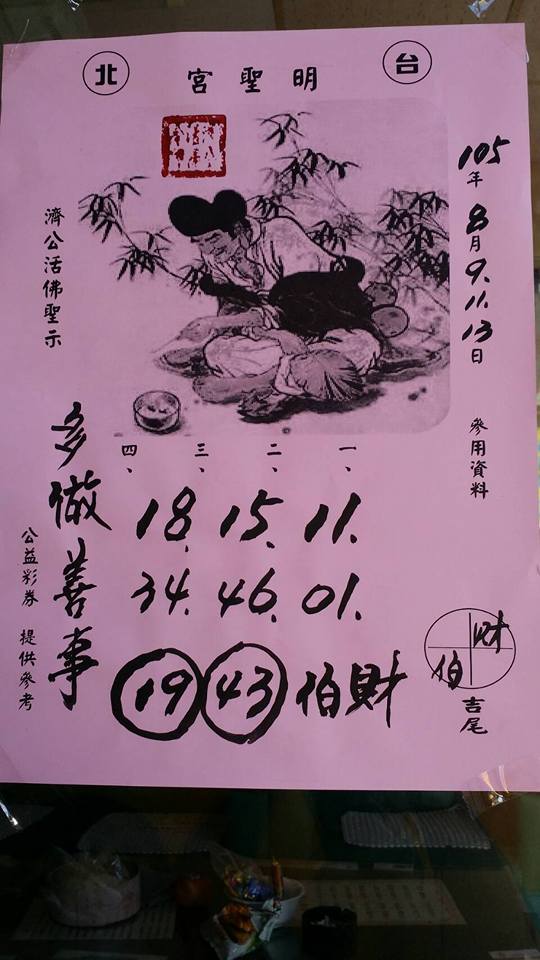 台北
明聖宮
105年8月9.11.13日 參用資料
濟公活佛聖示
一、二、三、四、
11. 15. 18.
01. 46. 34.
財伯 43 19
多做善事
公益彩券 提供參考
財伯
吉尾